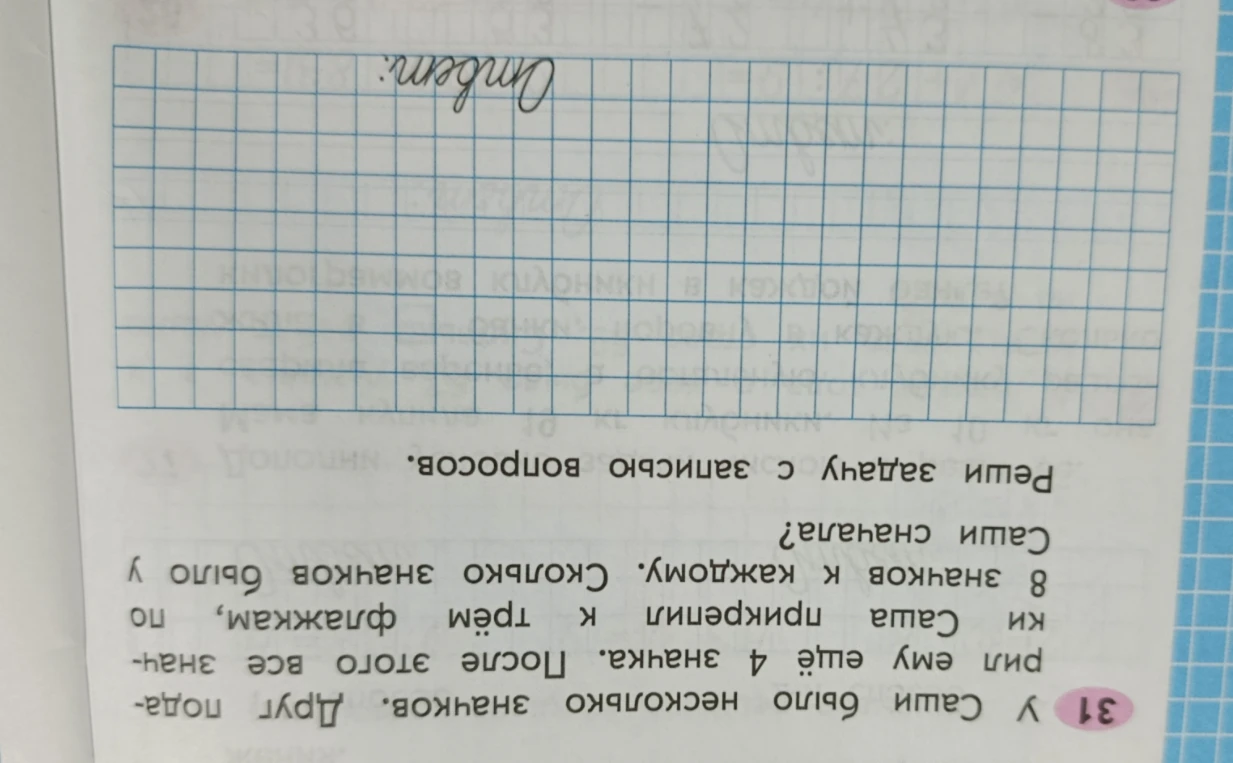 31 У Саши было несколько значков. Друг пода-
рил ему ещё 4 значка. После этого все знач-
ки Саша прикрепил к трём флажкам, по
8 значков к каждому. Сколько значков было у
Саши сначала?
Реши задачу с записью вопросов.
Ответ: